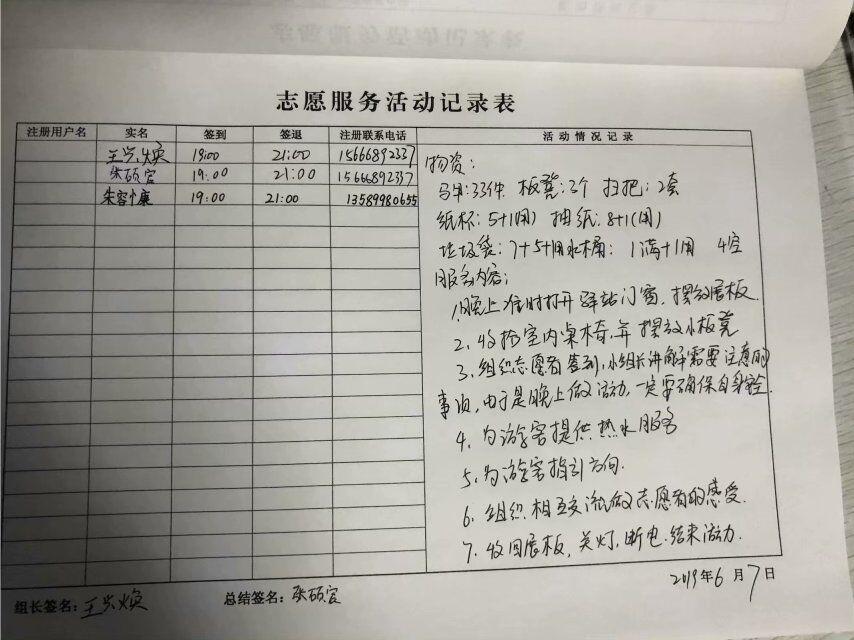 志愿服务活动记录表
注册用户名 实名 签到 签退 注册联系电话 活动情况记录
王兴焕 19:00 21:00 15666892337
张硕官 19:00 21:00 15666892337
朱容慷 19:00 21:00 13589980655
物资:
马甲:33件 板凳:3个 扫把:2套
纸杯:5+1(用) 抽纸:8+1(用)
垃圾袋:7+5+1用水桶: 1满+1用 4空
服务内容:
1.晚上准时打开驿站门窗,摆放展板
2.收拾室内桌椅,并摆放小板凳
3.组织志愿者签到,小组长讲解需要注意的
事项,由于是晚上做活动,一定要确保自身安全.
4.为游客提供热水服务
5.为游客指引方向.
6.组织相互交流做志愿者的感受.
7.收回展板,关灯,断电.结束活动.
2019年6月7日
组长签名:王兴焕 总结签名:张硕官